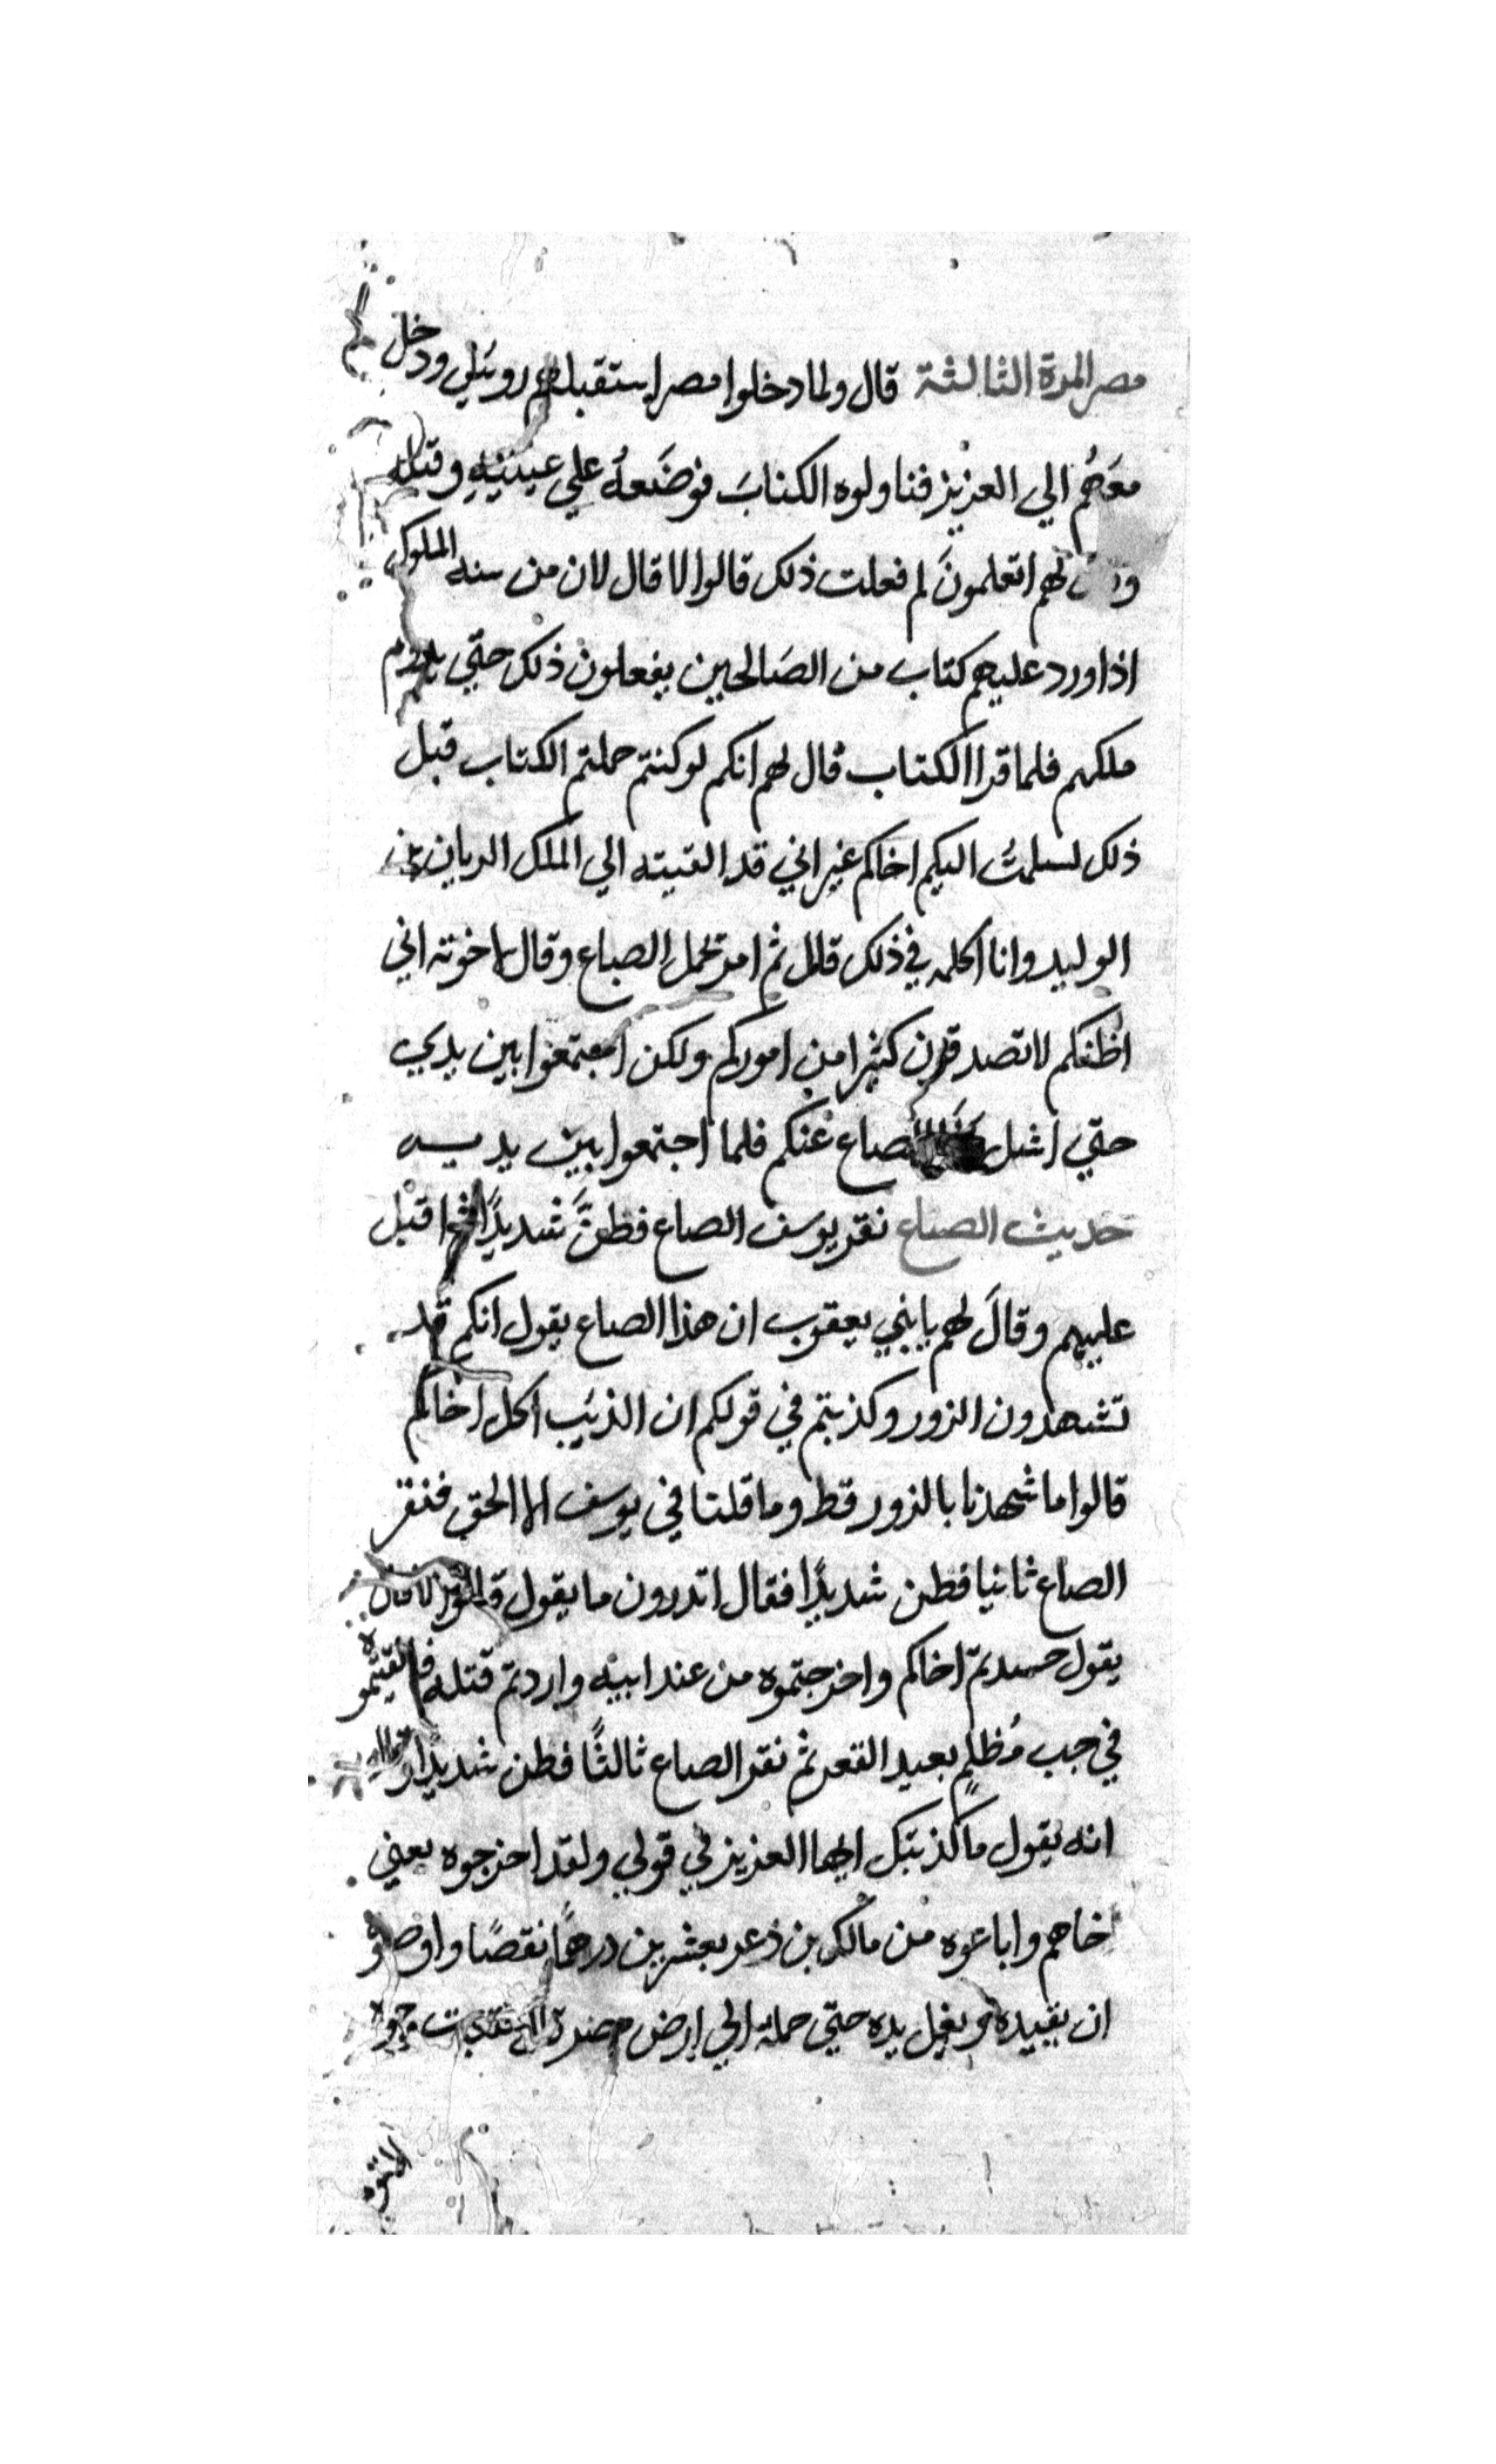 مصر المرة الثالثة قال ولما دخلوا مصر استقبلهم روبيل ودخل
معهُم الي العزيز فناولوه الكتابَ فوضَعهُ علي عينيهِ وقبله
لهم اتعلمونَ لم فعلت ذلك قالوا لا قال لان من سنه الملوك
اذا ورد عليهم كتاب من الصَالحين يفعلون ذلك حتّي يدوم
ملكهم فلما قرا الكتاب قال لهم انكم لو كنتم حملتم الكتاب قبل
ذلك لسلمتُ اليكم اخاكم غير اني قد القيته الي الملك الريان بن
الوليد وانا اكلمه في ذلك قال ثم امر بحمل الصاع وقال لاخوته اني
اظنكم لا تصدقون كثيرا من اموركم ولكن اجتمعوا بين يدي
حتّي اسٔل الصاع عنكم فلما اجتمعوا بين يديه
حديث الصاع نقر يوسف الصاع فطنَّ شديدًا ثم اقبل
عليهم وقالَ لهم يا بني يعقوب ان هذا الصاع يقول انكم قد
تشهدون الزور وكذبتم في قولكم ان الذئب اكل اخاكم
قالوا ما شهدنا بالزور قط وما قلنا في يوسف الا الحق فنقر
الصاع ثانيا فطن شديدًا فقال اتدرون ما يقول قالوا لا قال
يقول حسدتم اخاكم واخرجتموه من عند ابيه واردتم قتله فالقيتموه
في جب مُظلمٍ بعيد القعر ثم نقر الصاع ثالثًا فطن شديدًا وقال
انه يقول ما كذبتك ايها العزيز في قولي ولقد اخرجوه يعني
اخاهم واباعوه من مالك بن ذعر بعشرين درهمًا نقصًا واوصوه
ان يقيده ويغل يده حتّي حمله الي ارض مصر